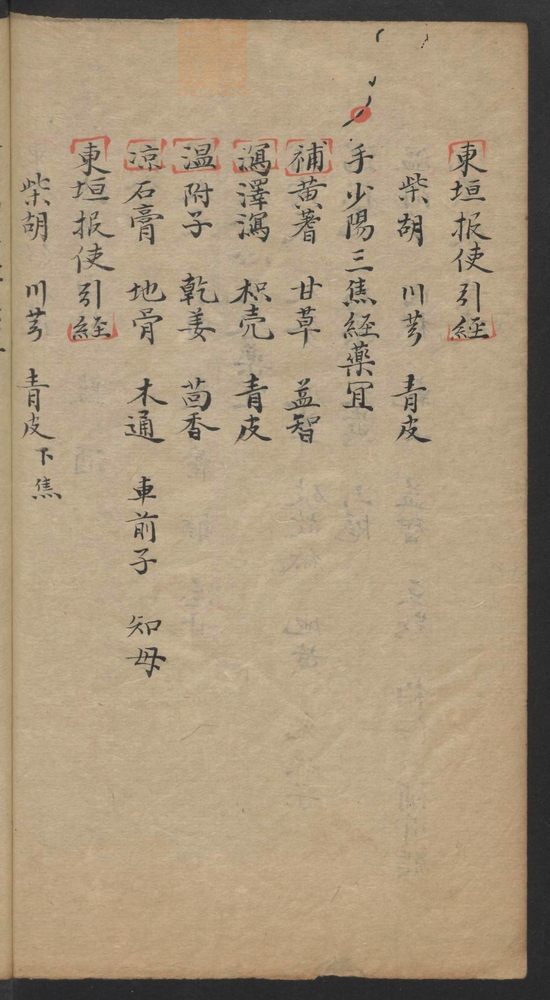 東垣报使引經
柴胡 川芎 青皮
手少陽三焦經藥宜
補黃蓍 甘草 益智
瀉澤瀉 枳壳 青皮
温附子 乾姜 茴香
凉石膏 地骨 木通 車前子 知母
東垣报使引經
柴胡 川芎 青皮下焦